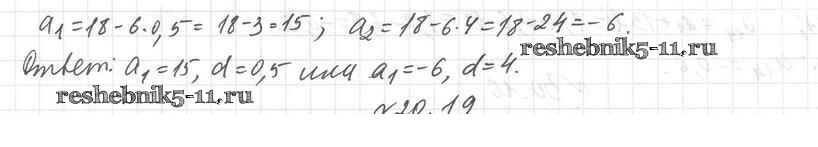 a₁=18-6·0,5=18-3=15; a₂=18-6·4=18-24=-6.
reshebnik5-11.ru
Ответ: a₁=15, d=0,5 или a₁=-6, d=4.
reshebnik5-11.ru
№20.19